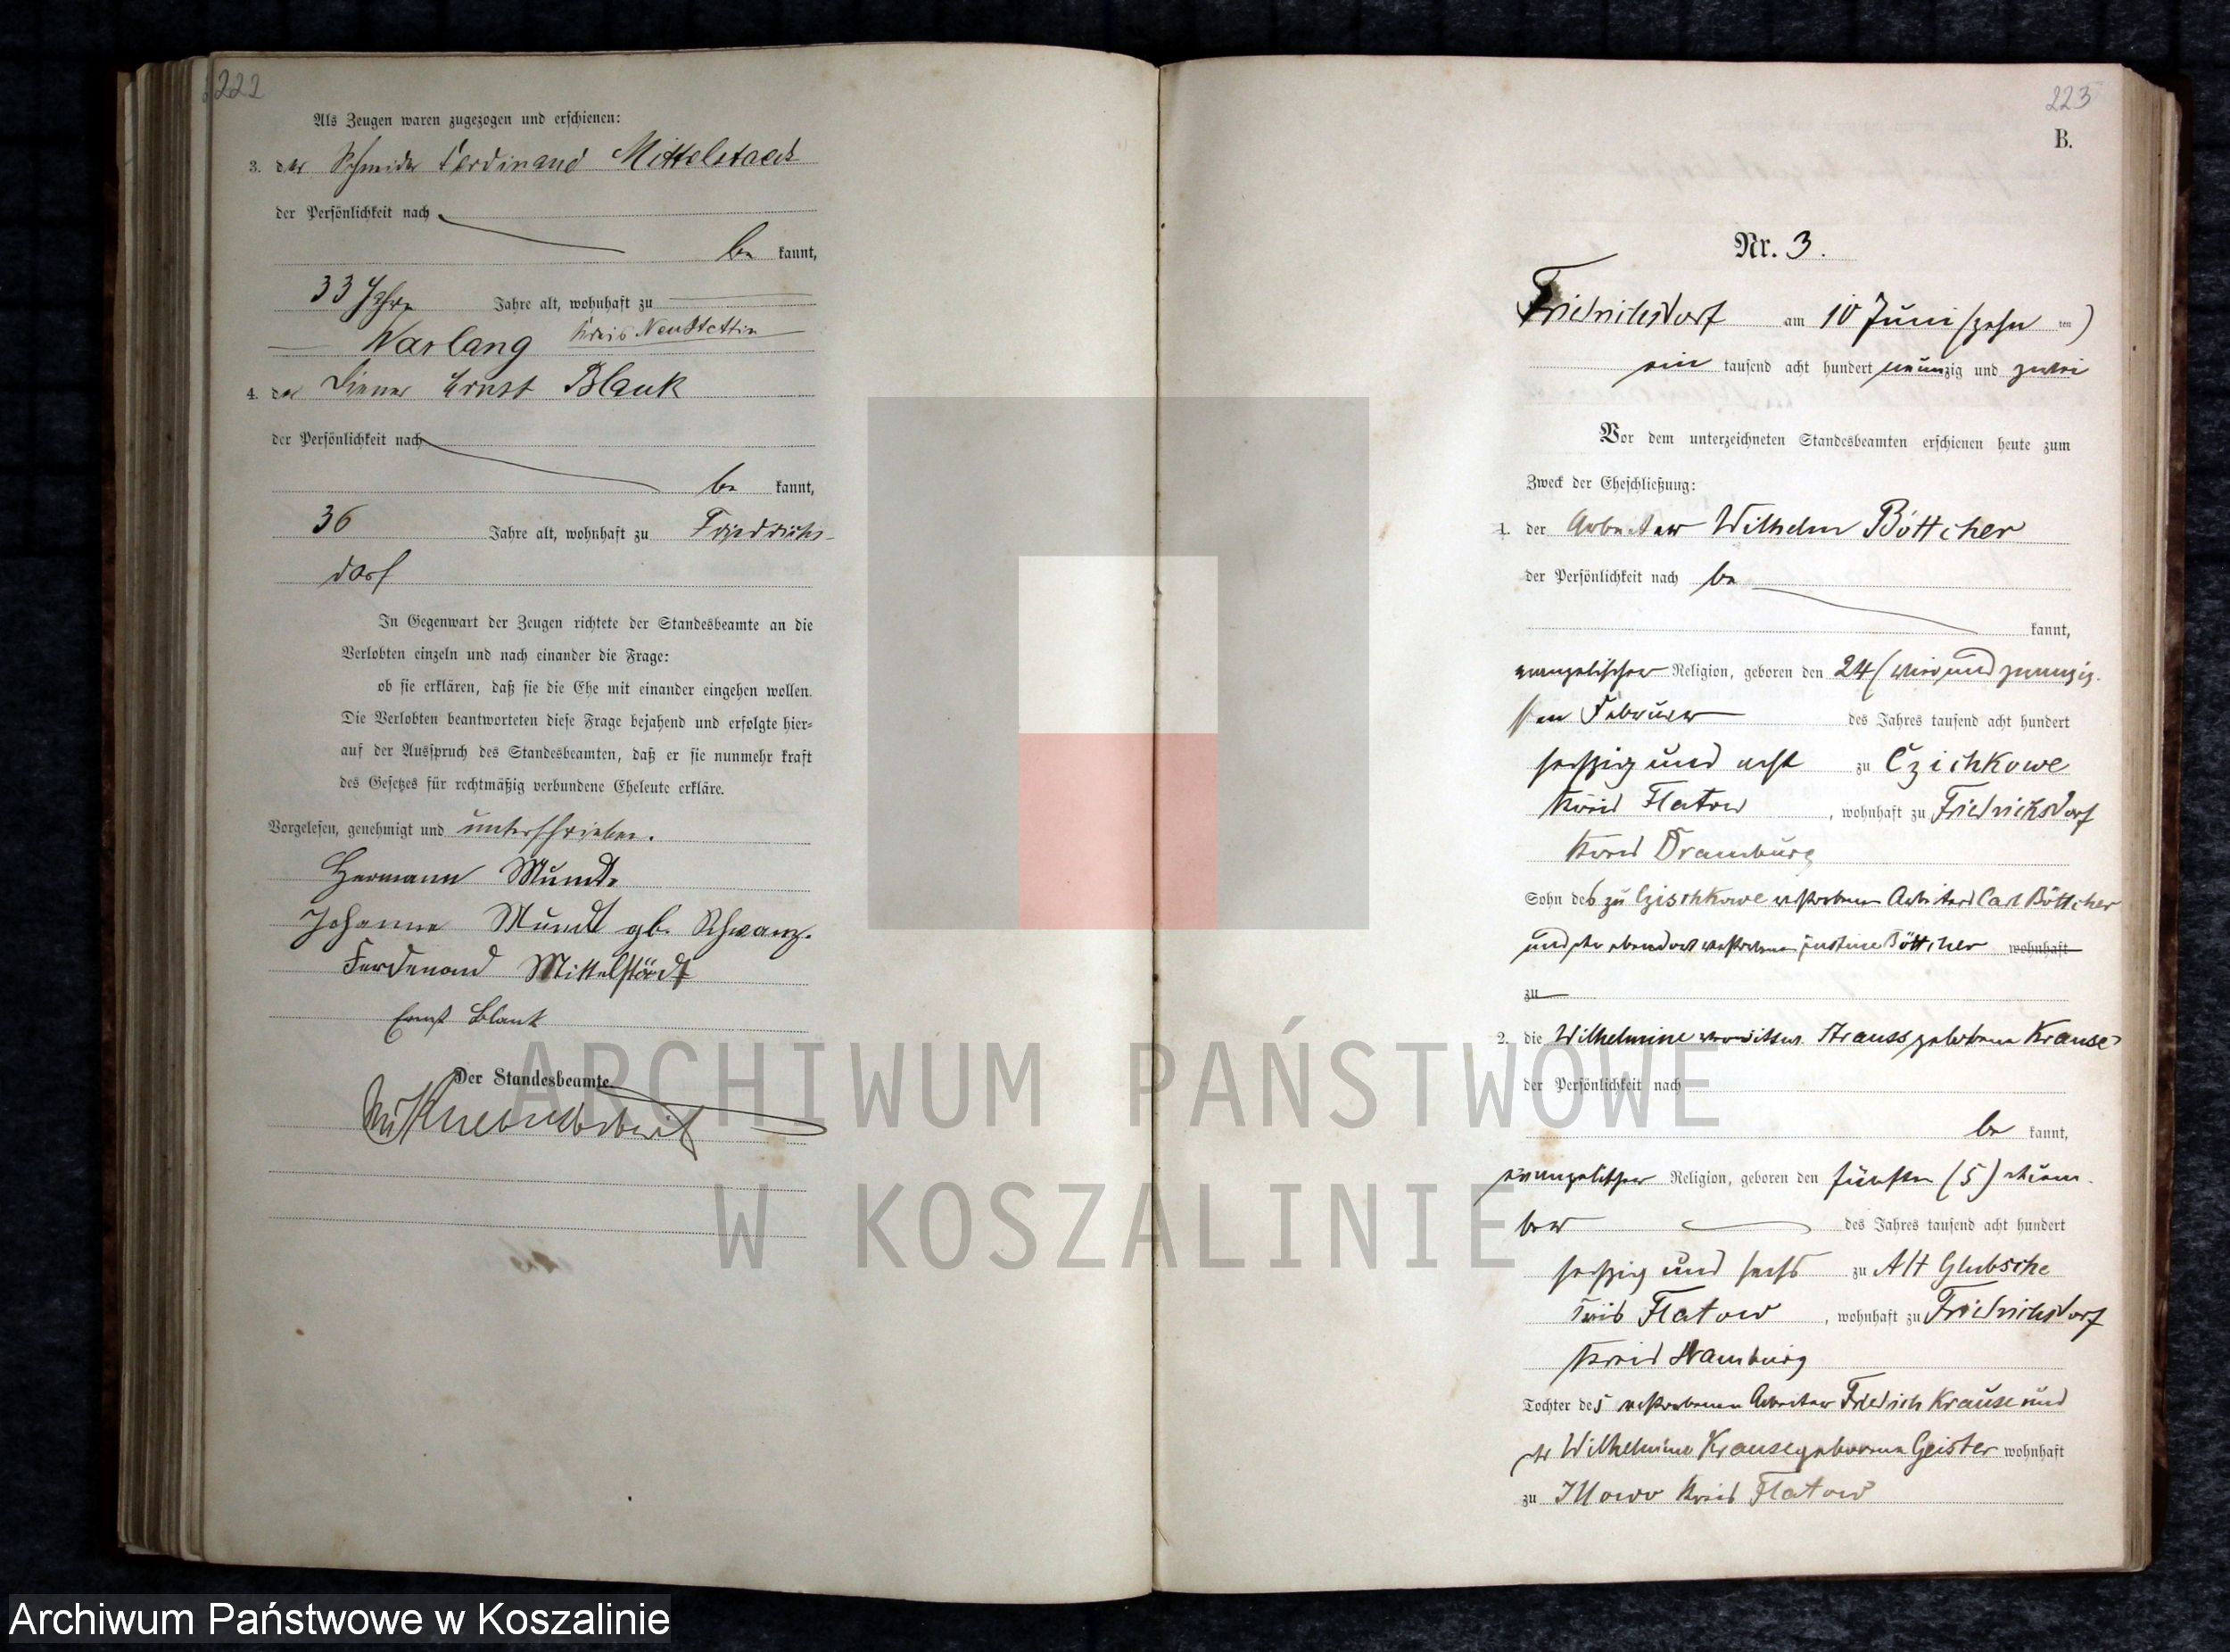 222
Als Zeugen waren zugezogen und erschienen:
3. der Schneider Ferdinand Mittelstaedt
der Persönlichkeit nach
be kannt,
33 Jahre Jahre alt, wohnhaft zu
Warlang Kreis Neustettin
4. der Diener Ernst Blank
der Persönlichkeit nach
be kannt,
36 Jahre alt, wohnhaft zu Friedrichs-
dorf
In Gegenwart der Zeugen richtete der Standesbeamte an die
Verlobten einzeln und nach einander die Frage:
ob sie erklären, daß sie die Ehe mit einander eingehen wollen.
Die Verlobten beantworteten diese Frage bejahend und erfolgte hier-
auf der Ausspruch des Standesbeamten, daß er sie nunmehr kraft
des Gesetzes für rechtmäßig verbundene Eheleute erkläre.
Vorgelesen, genehmigt und unterschrieben.
Hermann Mundt
Johanna Mundt gb. Schwanz.
Ferdenand Mittelstädt
Ernst Blank
Der Standesbeamte
223
B.
Nr. 3.
Friedrichsdorf am 10 Juni (zehn ten)
ein tausend acht hundert neunzig und zwei
Vor dem unterzeichneten Standesbeamten erschienen heute zum
Zweck der Eheschließung:
1. der Arbeiter Wilhelm Böttcher
der Persönlichkeit nach be
kannt,
evangelischer Religion, geboren den 24 (vierundzwanzig-
sten Februar des Jahres tausend acht hundert
sechzig und acht zu Czichkowe
Kreis Flatow, wohnhaft zu Friedrichsdorf
Kreis Dramburg
Sohn des zu Czischkowe verstorbenen Arbeiters Carl Böttcher
und der ebendort verstorbenen Justine Böttcher wohnhaft
zu
2. die Wilhelmine verwittwe Strauss geborene Krause
der Persönlichkeit nach
be kannt,
evangelischer Religion, geboren den fünften (5)
ber des Jahres tausend acht hundert
sechzig und sechs zu Alt Glubsche
Kreis Flatow, wohnhaft zu Friedrichsdorf
Kreis Dramburg
Tochter des verstorbenen Arbeiter Friedrich Krause und
der Wilhelmine Krause geborene Geister wohnhaft
zu Illowo Kreis Flatow
ARCHIWUM PAŃSTWOWE
W KOSZALINIE
Archiwum Państwowe w Koszalinie